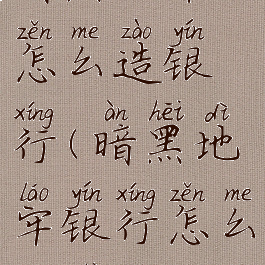 zěn me zào yín
怎么造银
xíng àn hēi dì
行(暗黑地
láo yín xíng zěn me
牢银行怎么